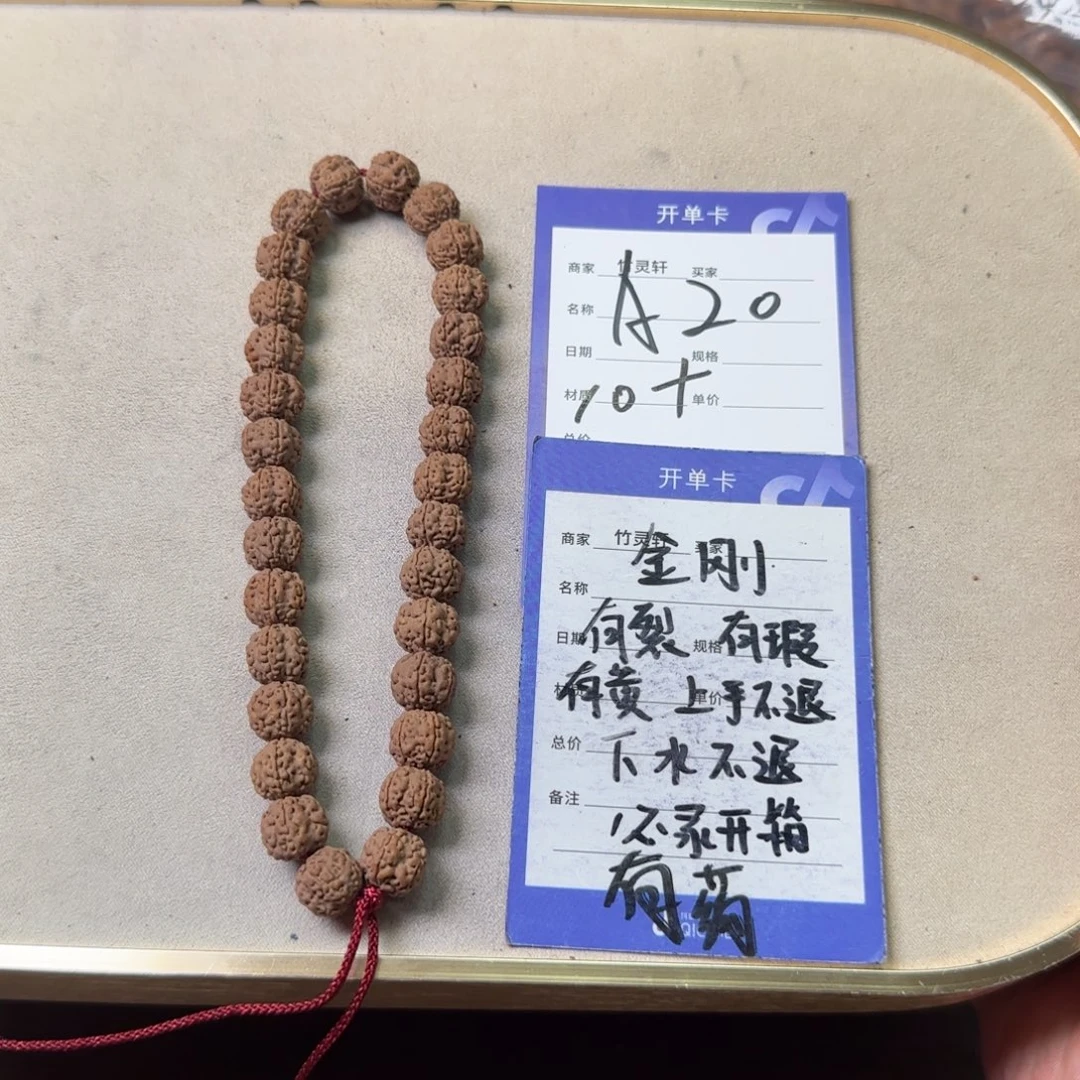 开单卡
商家 竹灵轩 买家
A20
名称
日期 规格
10+
材质 单价
总价
开单卡
商家 竹灵轩 买家
金刚
名称
日期 有裂 规格 有瑕
有黄 单价 上手不退
总价 下水不退
备注
必录开箱
有药